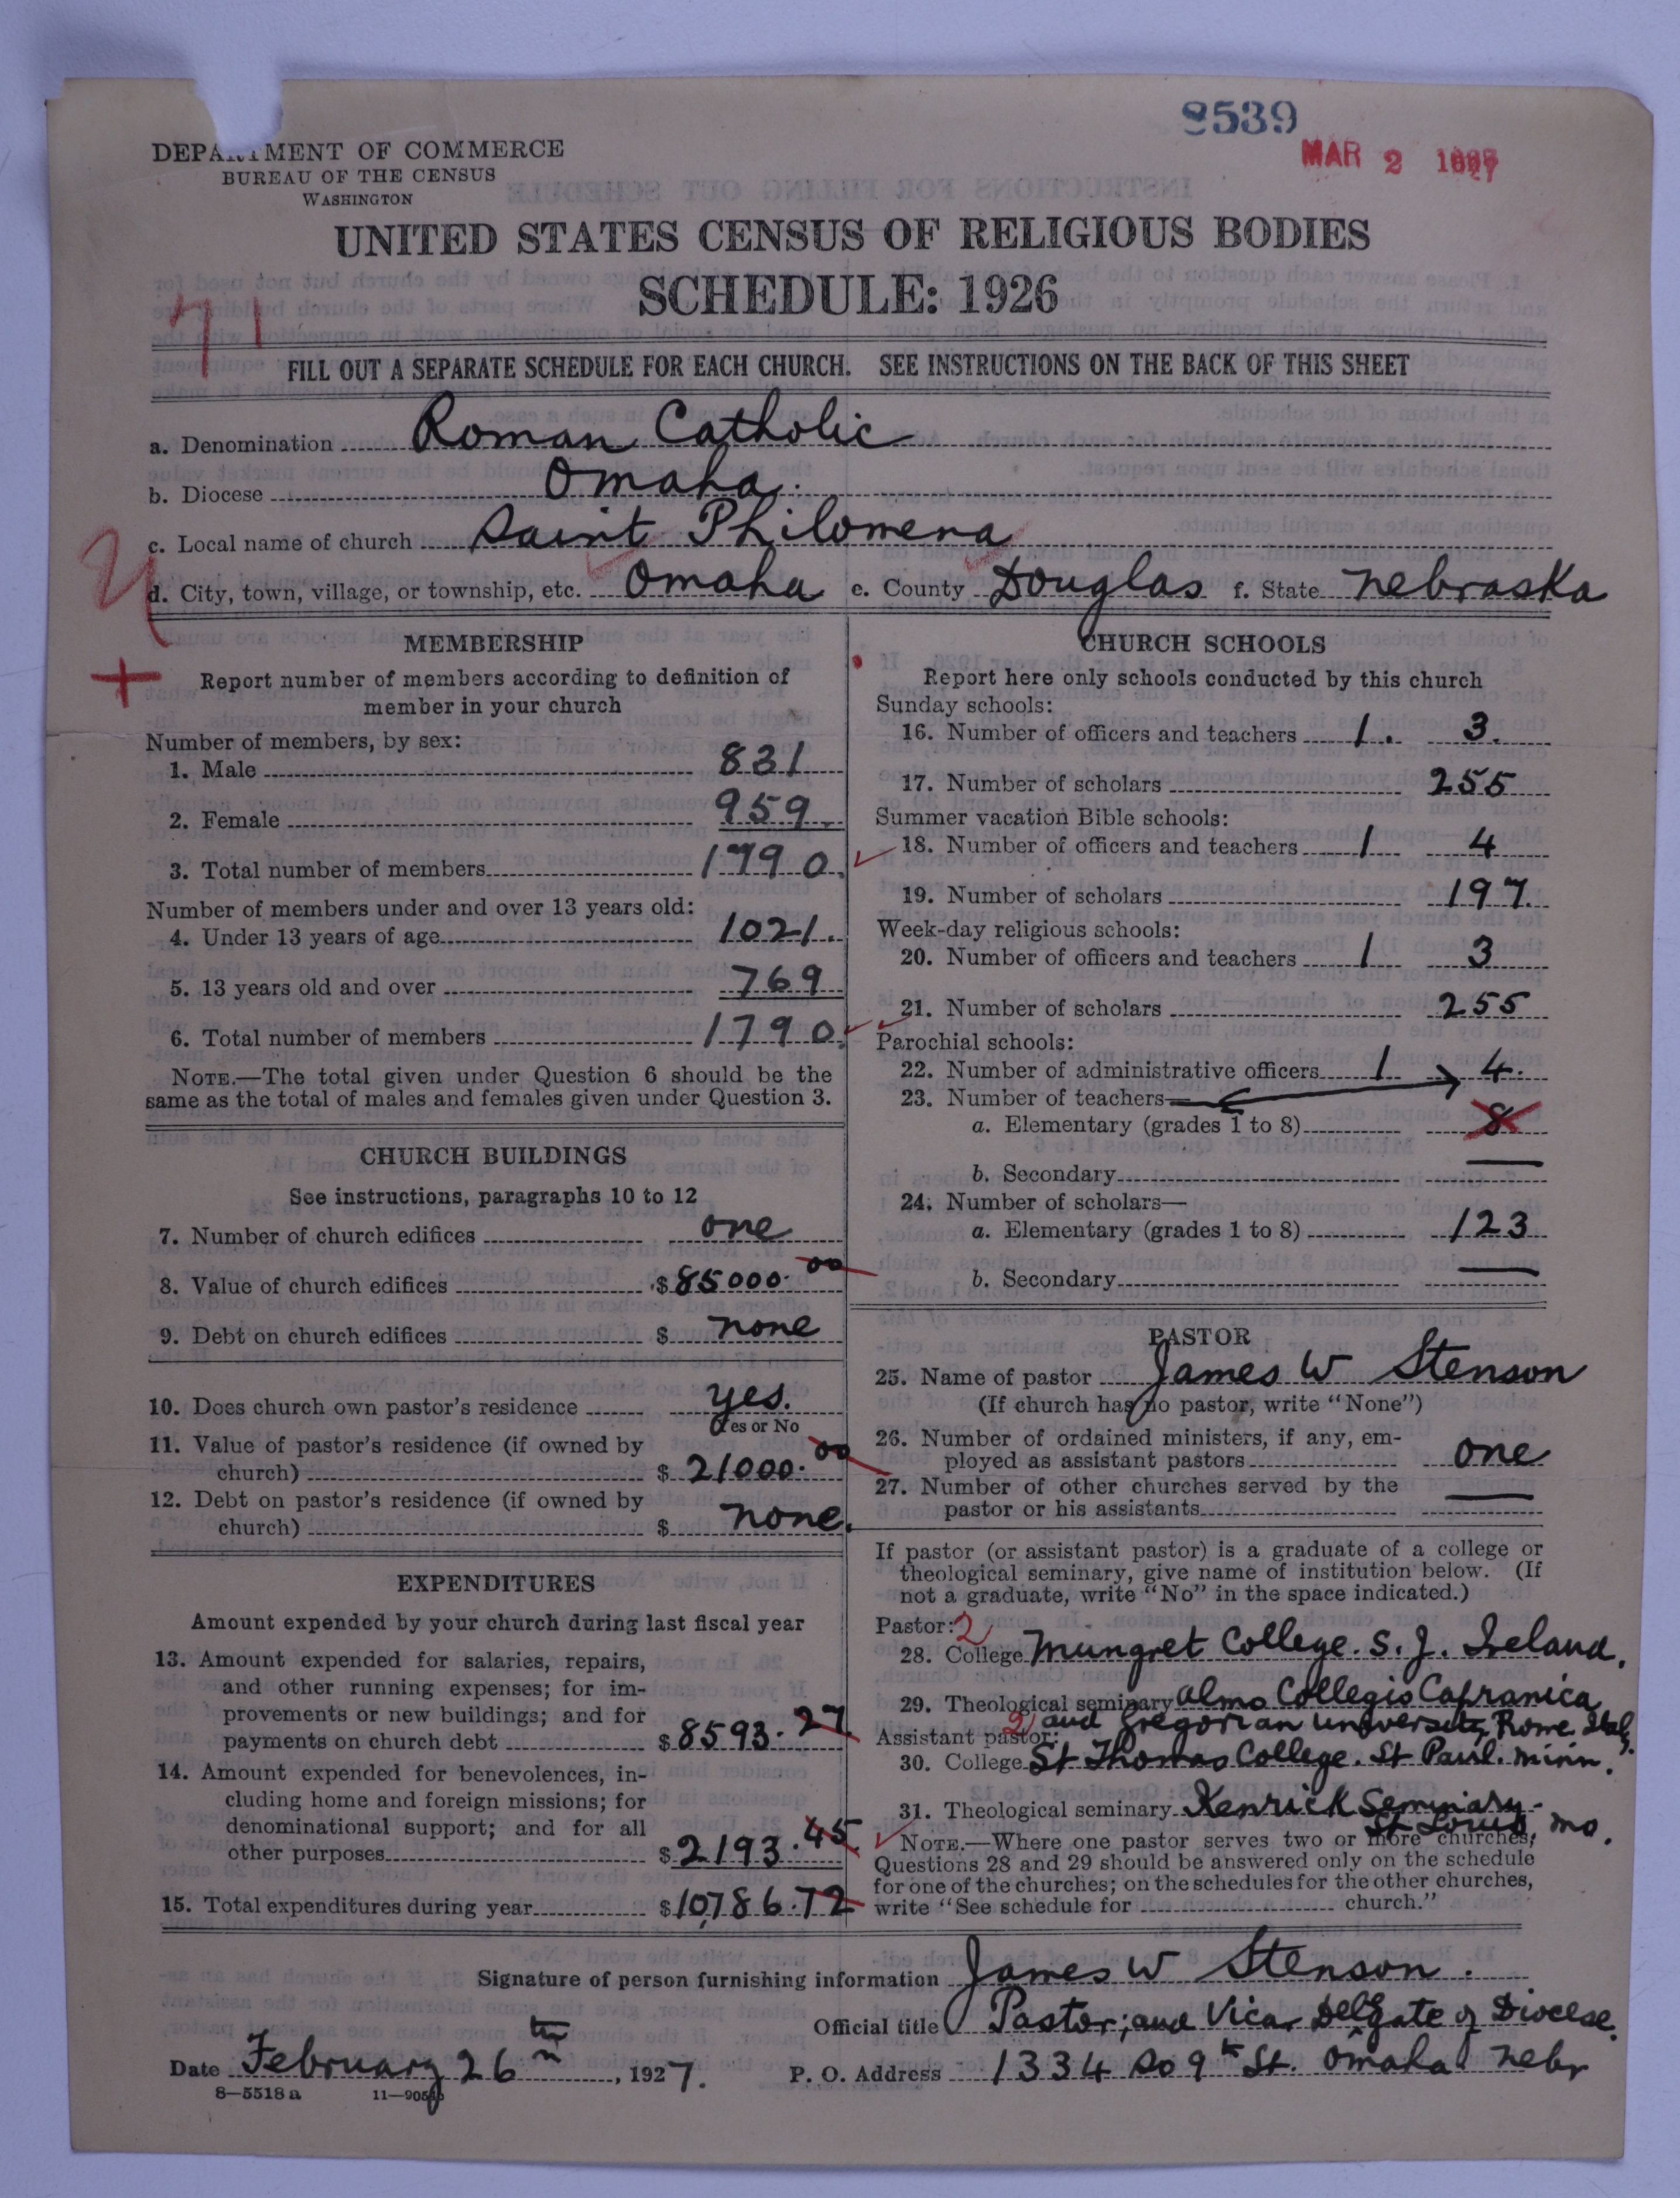 8539
MAR 2 1927
DEPARTMENT OF COMMERCE
BUREAU OF THE CENSUS
WASHINGTON
UNITED STATES CENSUS OF RELIGIOUS BODIES
SCHEDULE: 1926
71
FILL OUT A SEPARATE SCHEDULE FOR EACH CHURCH. SEE INSTRUCTIONS ON THE BACK OF THIS SHEET
a. Denomination Roman Catholic
b. Diocese Omaha.
c. Local name of church Saint Philomena
d. City, town, village, or township, etc. Omaha e. County Douglas f. State Nebraska
MEMBERSHIP
Report number of members according to definition of
member in your church
Number of members, by sex:
1. Male 831
2. Female 959
3. Total number of members 1790.
Number of members under and over 13 years old:
4. Under 13 years of age 1021.
5. 13 years old and over 769
6. Total number of members 1790.
NOTE.—The total given under Question 6 should be the
same as the total of males and females given under Question 3.
CHURCH BUILDINGS
See instructions, paragraphs 10 to 12
7. Number of church edifices one
8. Value of church edifices $ 85000.00
9. Debt on church edifices $ none
10. Does church own pastor's residence yes.
Yes or No
11. Value of pastor's residence (if owned by
church) $ 21000.00
12. Debt on pastor's residence (if owned by
church) $ none.
EXPENDITURES
Amount expended by your church during last fiscal year
13. Amount expended for salaries, repairs,
and other running expenses; for im-
provements or new buildings; and for
payments on church debt $ 8593.27
14. Amount expended for benevolences, in-
cluding home and foreign missions; for
denominational support; and for all
other purposes $ 2193.45
15. Total expenditures during year $ 10,786.72
CHURCH SCHOOLS
Report here only schools conducted by this church
Sunday schools:
16. Number of officers and teachers 1. 3.
17. Number of scholars 255
Summer vacation Bible schools:
18. Number of officers and teachers 1 4
19. Number of scholars 197.
Week-day religious schools:
20. Number of officers and teachers 1 3
21. Number of scholars 255
Parochial schools:
22. Number of administrative officers 1 4.
23. Number of teachers—
a. Elementary (grades 1 to 8) 8
b. Secondary —
24. Number of scholars—
a. Elementary (grades 1 to 8) 123
b. Secondary —
PASTOR
25. Name of pastor James W Stenson
(If church has no pastor, write "None")
26. Number of ordained ministers, if any, em-
ployed as assistant pastors one
27. Number of other churches served by the
pastor or his assistants —
If pastor (or assistant pastor) is a graduate of a college or
theological seminary, give name of institution below. (If
not a graduate, write "No" in the space indicated.)
Pastor: 2
28. College Mungret College. S.J. Ireland.
29. Theological seminary Almo Collegio Capranica
and Gregorian University, Rome Italy.
Assistant pastor: 2
30. College St Thomas College. St Paul. Minn.
31. Theological seminary Kenrick Seminary-
St Louis Mo.
NOTE.—Where one pastor serves two or more churches,
Questions 28 and 29 should be answered only on the schedule
for one of the churches; on the schedules for the other churches,
write "See schedule for church."
Signature of person furnishing information James W Stenson.
Official title Pastor; and Vicar Delgate of Diocese.
Date February 26th, 1927. P. O. Address 1334 So 9th St. Omaha Nebr
8—5518a